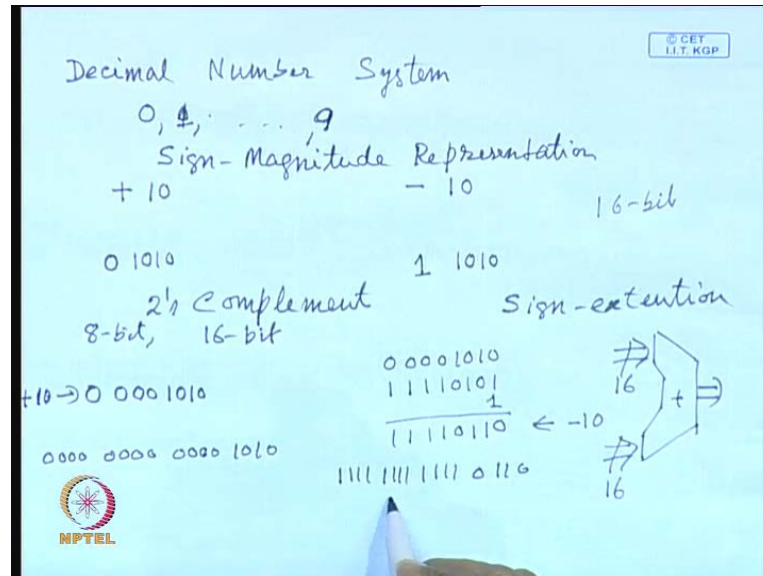 © CET
I.I.T. KGP
Decimal Number System
0, 1, . . . . , 9
Sign-Magnitude Representation
+ 10 - 10
16-bit
0 1010 1 1010
2's Complement Sign-extention
8-bit, 16-bit
00001010
11110101
1
+10 → 0 0001010
11110110 ← -10
0000 0000 0000 1010
1111 1111 1111 0110
16
+
16
NPTEL